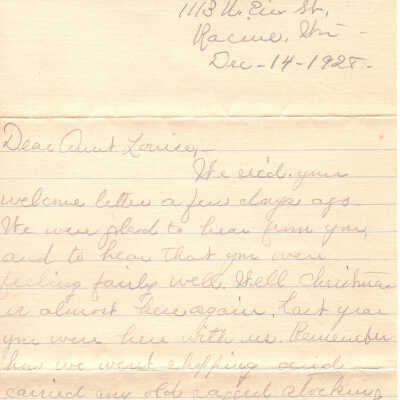 1113 N. Erie St,
Racine, Wis -
Dec - 14 - 1928 -
Dear Aunt Louise, -
We rec'd. your
welcome letter a few days ago.
We were glad to hear from you,
and to hear that you were
feeling fairly well. Well Christmas
is almost here again. Last year
you were here with us. Remember
how we went shopping and
carried my old ragged stocking